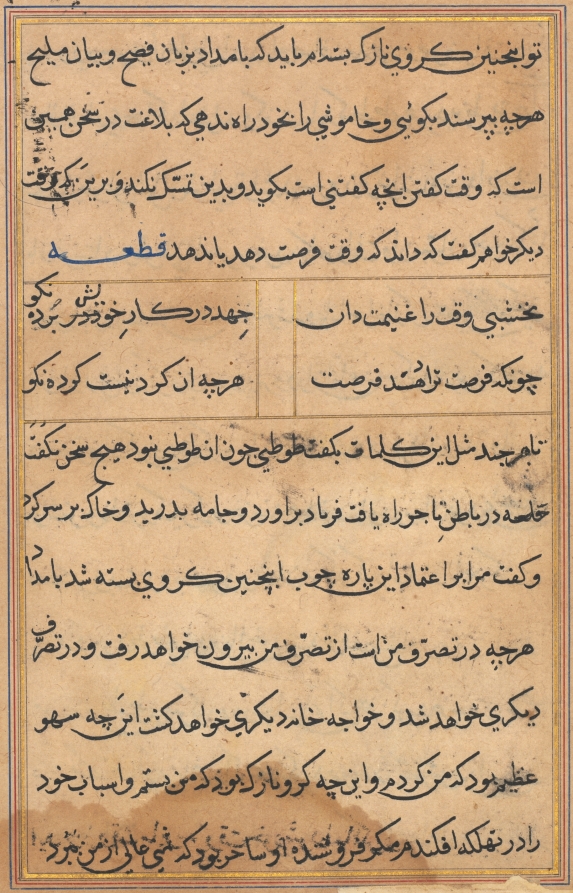 تو اینچنین کروی نازک بستهام باید که بامداد بزبان فصیح و بیان ملیح
هرچه بپرسند بکوئی و خاموشی را بخود راه ندهی که بلاغت در سخن همین
است که وقت کفتن انچه کفتنی است بکوید و بدین تمسک نکند و برین که وقت
دیکر خواهم کفت که داند که وقت فرصت دهد یا ندهد قطعه
نخشبی وقت را غنیمت دان جهد در کار خود در برده نکو
چونکه فرصت ترا هُد فرصت هرچه ان کرد نیست کرده نکو
تاجر چند مثل این کلمات بکفت طوطی چون ان طوطی نبود هیچ سخن نکفت
در باطن تاجر راه یافت فریاد براورد و جامه بدرید و خاک بر سر کرد
و کفت مرا بر اعتماد این پاره چوب اینچنین کروی بسته شد بامداد
هرچه در تصرّف من است از تصرّف من بیرون خواهد رفت و در تصرّف
دیکری خواهد شد و خواجه خانه دیکری خواهد کشت این چه سهو
عظیم بود که من کردم و این چه کرو نازک بود که من بستم و اسباب خود
را در تهلکه افکندم مکر فروشنده او ساحر بود که از من ببرد